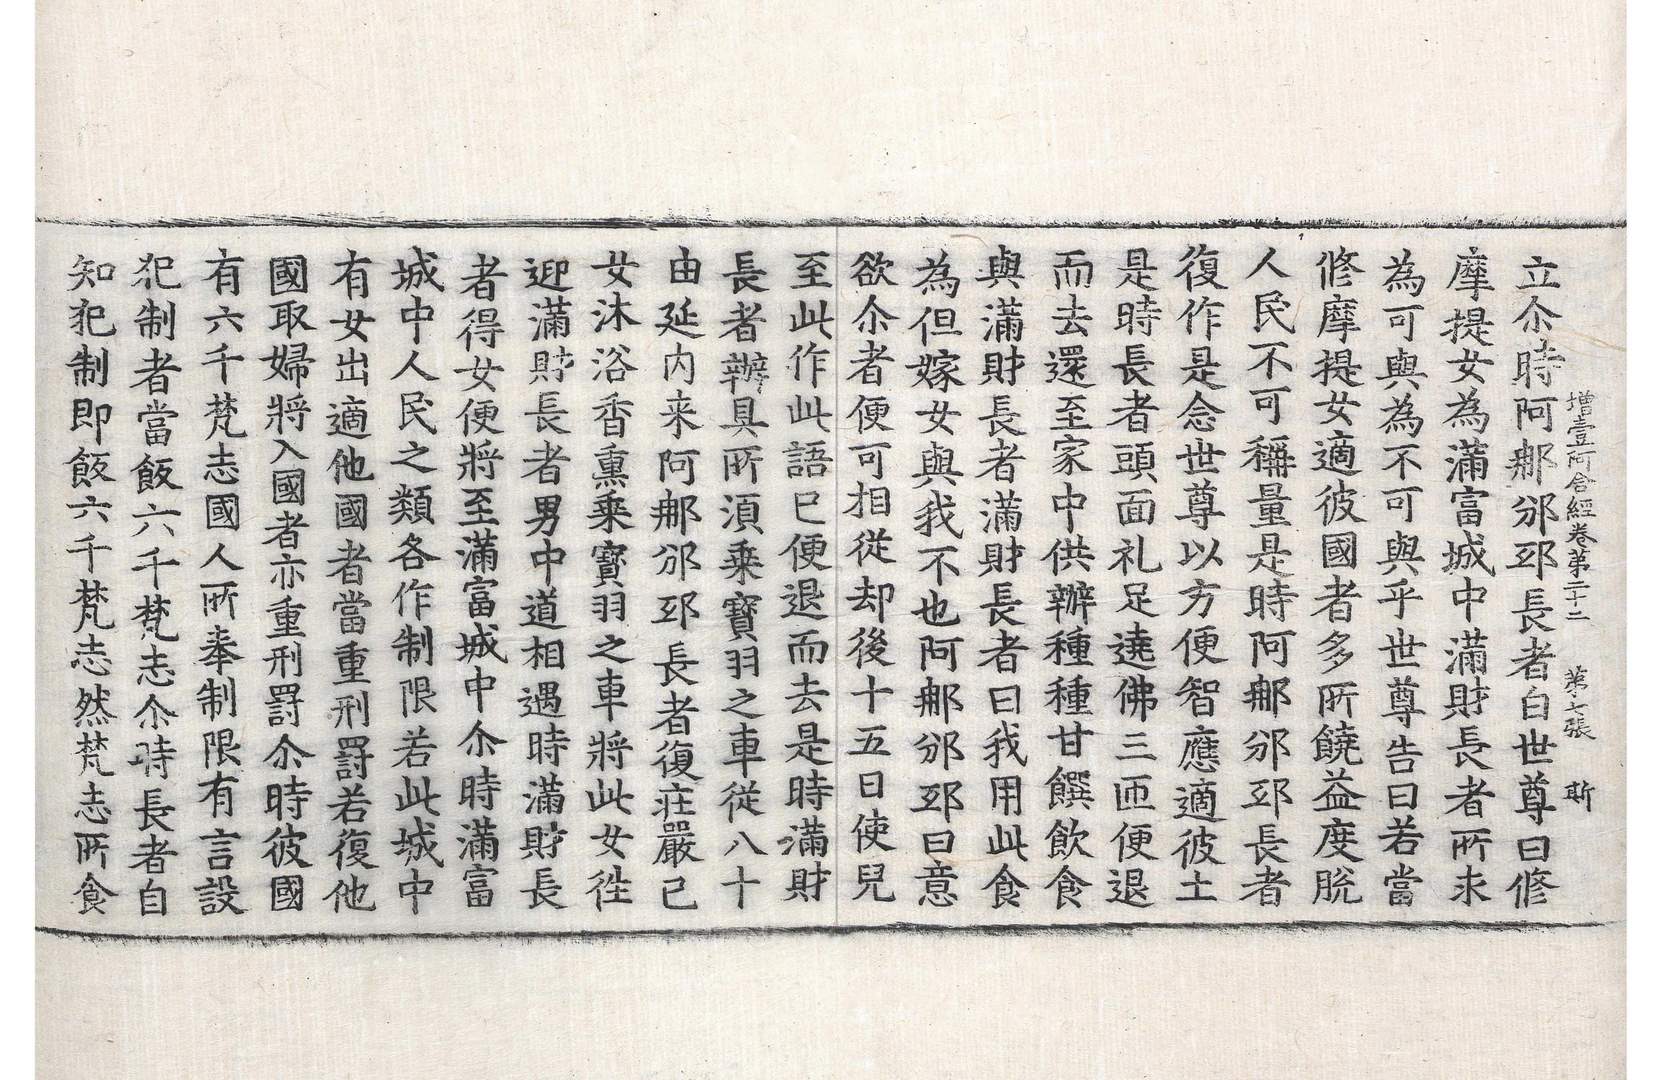 增壹阿含經卷第二十二 第七張 斯
立尒時阿𨚗邠邸長者白世尊曰修
摩提女為滿富城中滿財長者所求
為可與為不可與乎世尊告曰若當
修摩提女適彼國者多所饒益度脫
人民不可稱量是時阿𨚗邠邸長者
復作是念世尊以方便智應適彼土
是時長者頭面礼足遶佛三匝便退
而去還至家中供辦種種甘饌飲食
與滿財長者滿財長者曰我用此食
為但嫁女與我不也阿𨚗邠邸曰意
欲尒者便可相從却後十五日使兒
至此作此語已便退而去是時滿財
長者辦具所須乘寶羽之車從八十
由延内来阿𨚗邠邸長者復莊嚴己
女沐浴香熏乘寶羽之車將此女徃
迎滿財長者男中道相遇時滿財長
者得女便將至滿富城中尒時滿富
城中人民之類各作制限若此城中
有女出適他國者當重刑罰若復他
國取婦將入國者亦重刑罰尒時彼國
有六千梵志國人所奉制限有言設
犯制者當飯六千梵志尒時長者自
知犯制即飯六千梵志然梵志所食